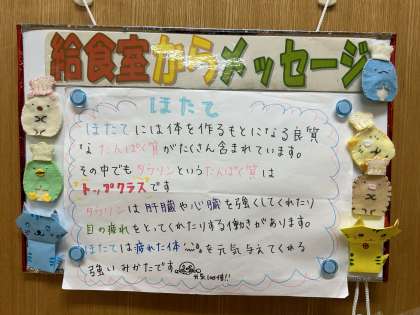 給食室からメッセージ
ほたて
ほたてには体を作るもとになる良質
なたんぱく質がたくさん含まれています。
その中でもタウリンというたんぱく質は
トップクラスです
タウリンは肝臓や心臓を強くしてくれたり
目の疲れをとってくれたりする働きがあります。
ほたては疲れた体を元気与えてくれる
強いみかたです